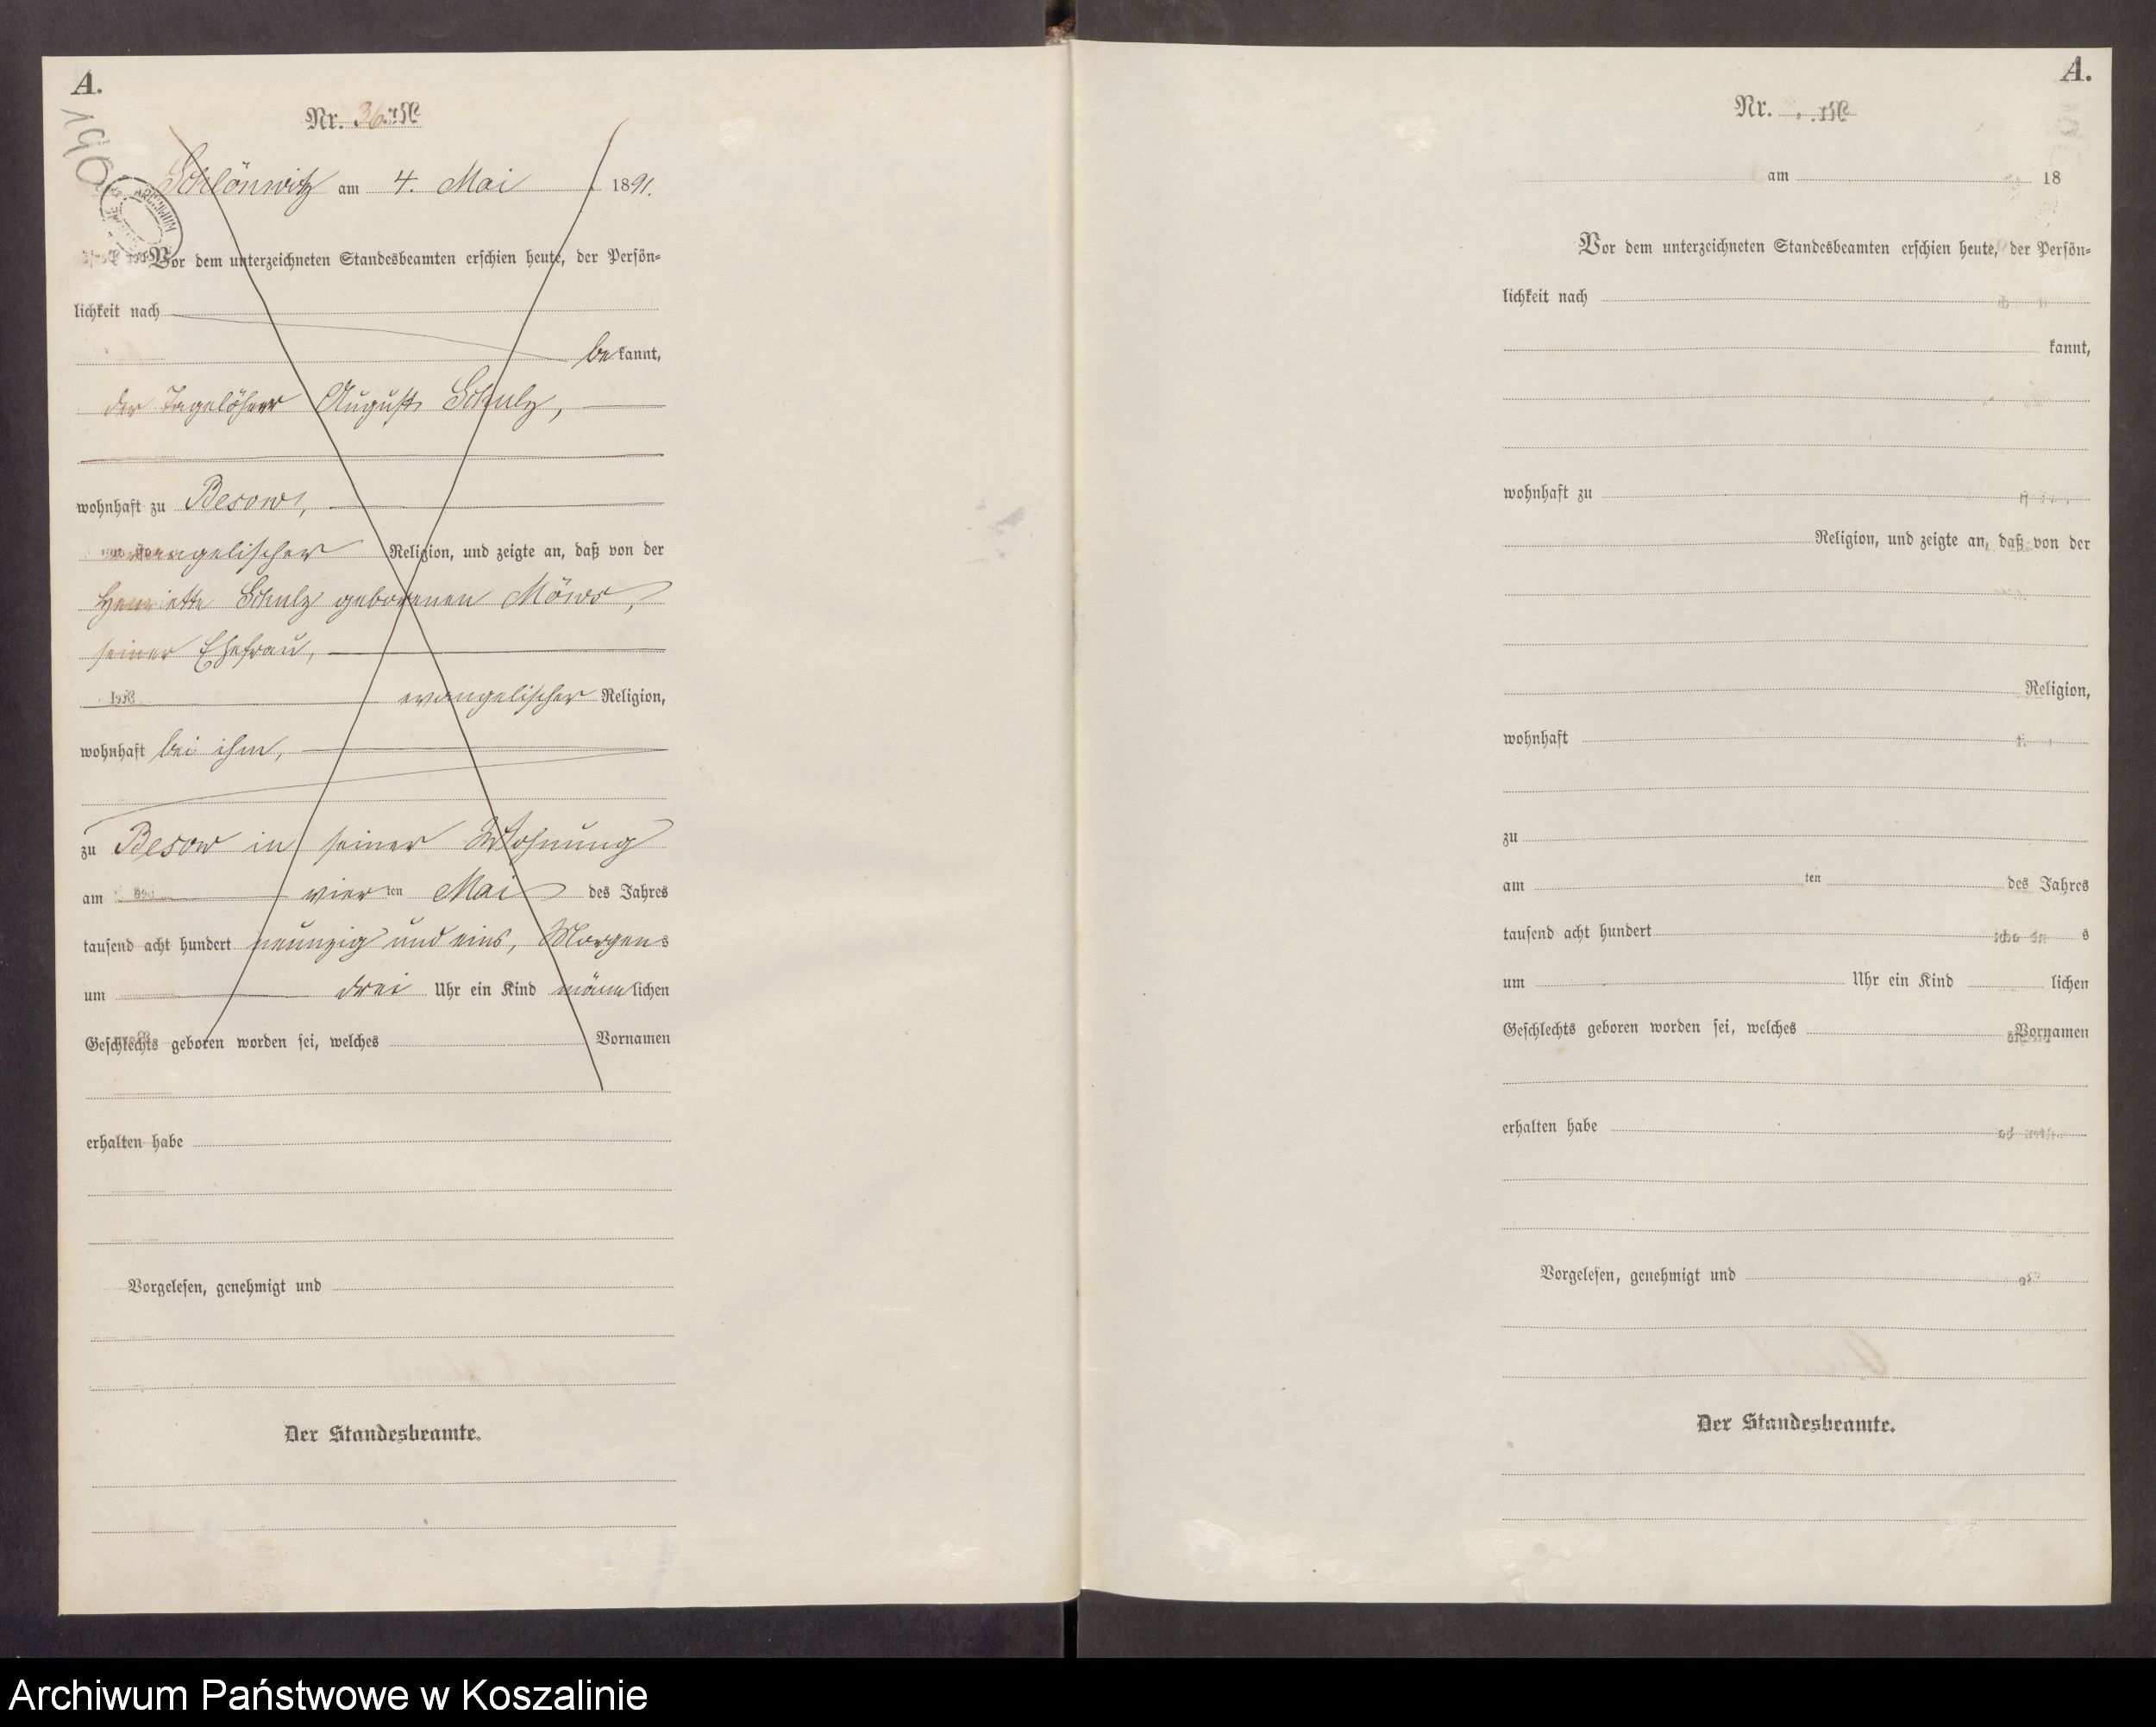 A.
Nr. 36.
190
Schlönwitz am 4. Mai 1891.
ARCHIWUM
Vor dem unterzeichneten Standesbeamten erschien heute, der Persön=
lichkeit nach
bekannt,
der Tagelöhner August Schulz,
wohnhaft zu Besow,
evangelischer Religion, und zeigte an, daß von der
Henriette Schulz geborenen Möws,
seiner Ehefrau,
evangelischer Religion,
wohnhaft bei ihm,
zu Besow in seiner Wohnung
am vierten Mai des Jahres
tausend acht hundert neunzig und eins, Morgens
um drei Uhr ein Kind männlichen
Geschlechts geboren worden sei, welches Vornamen
erhalten habe
Vorgelesen, genehmigt und
Der Standesbeamte.
A.
Nr.
am 18
Vor dem unterzeichneten Standesbeamten erschien heute, der Persön=
lichkeit nach
kannt,
wohnhaft zu
Religion, und zeigte an, daß von der
Religion,
wohnhaft
zu
am ten des Jahres
tausend acht hundert s
um Uhr ein Kind lichen
Geschlechts geboren worden sei, welches Vornamen
erhalten habe
Vorgelesen, genehmigt und
Der Standesbeamte.
Archiwum Państwowe w Koszalinie